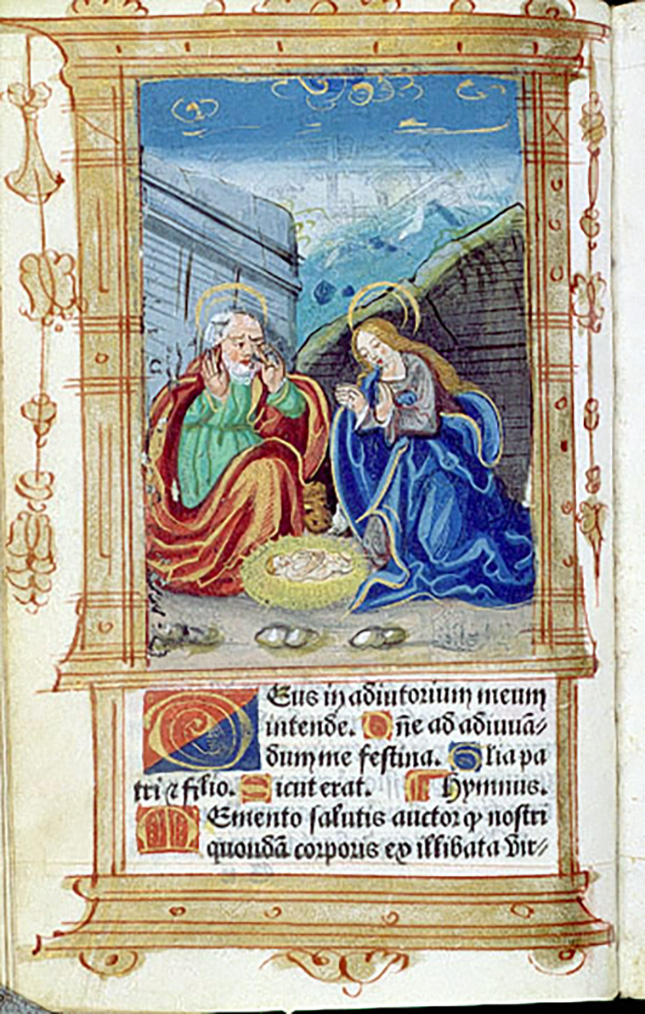 Deus in adiutorium meum
intende. Dñe ad adiuuā-
dum me festina. Glia pa
tri ⁊ filio. Sicut erat. Hymnus.
Memento salutis auctor ꝙ nostri
quondā corporis ex illibata vir-